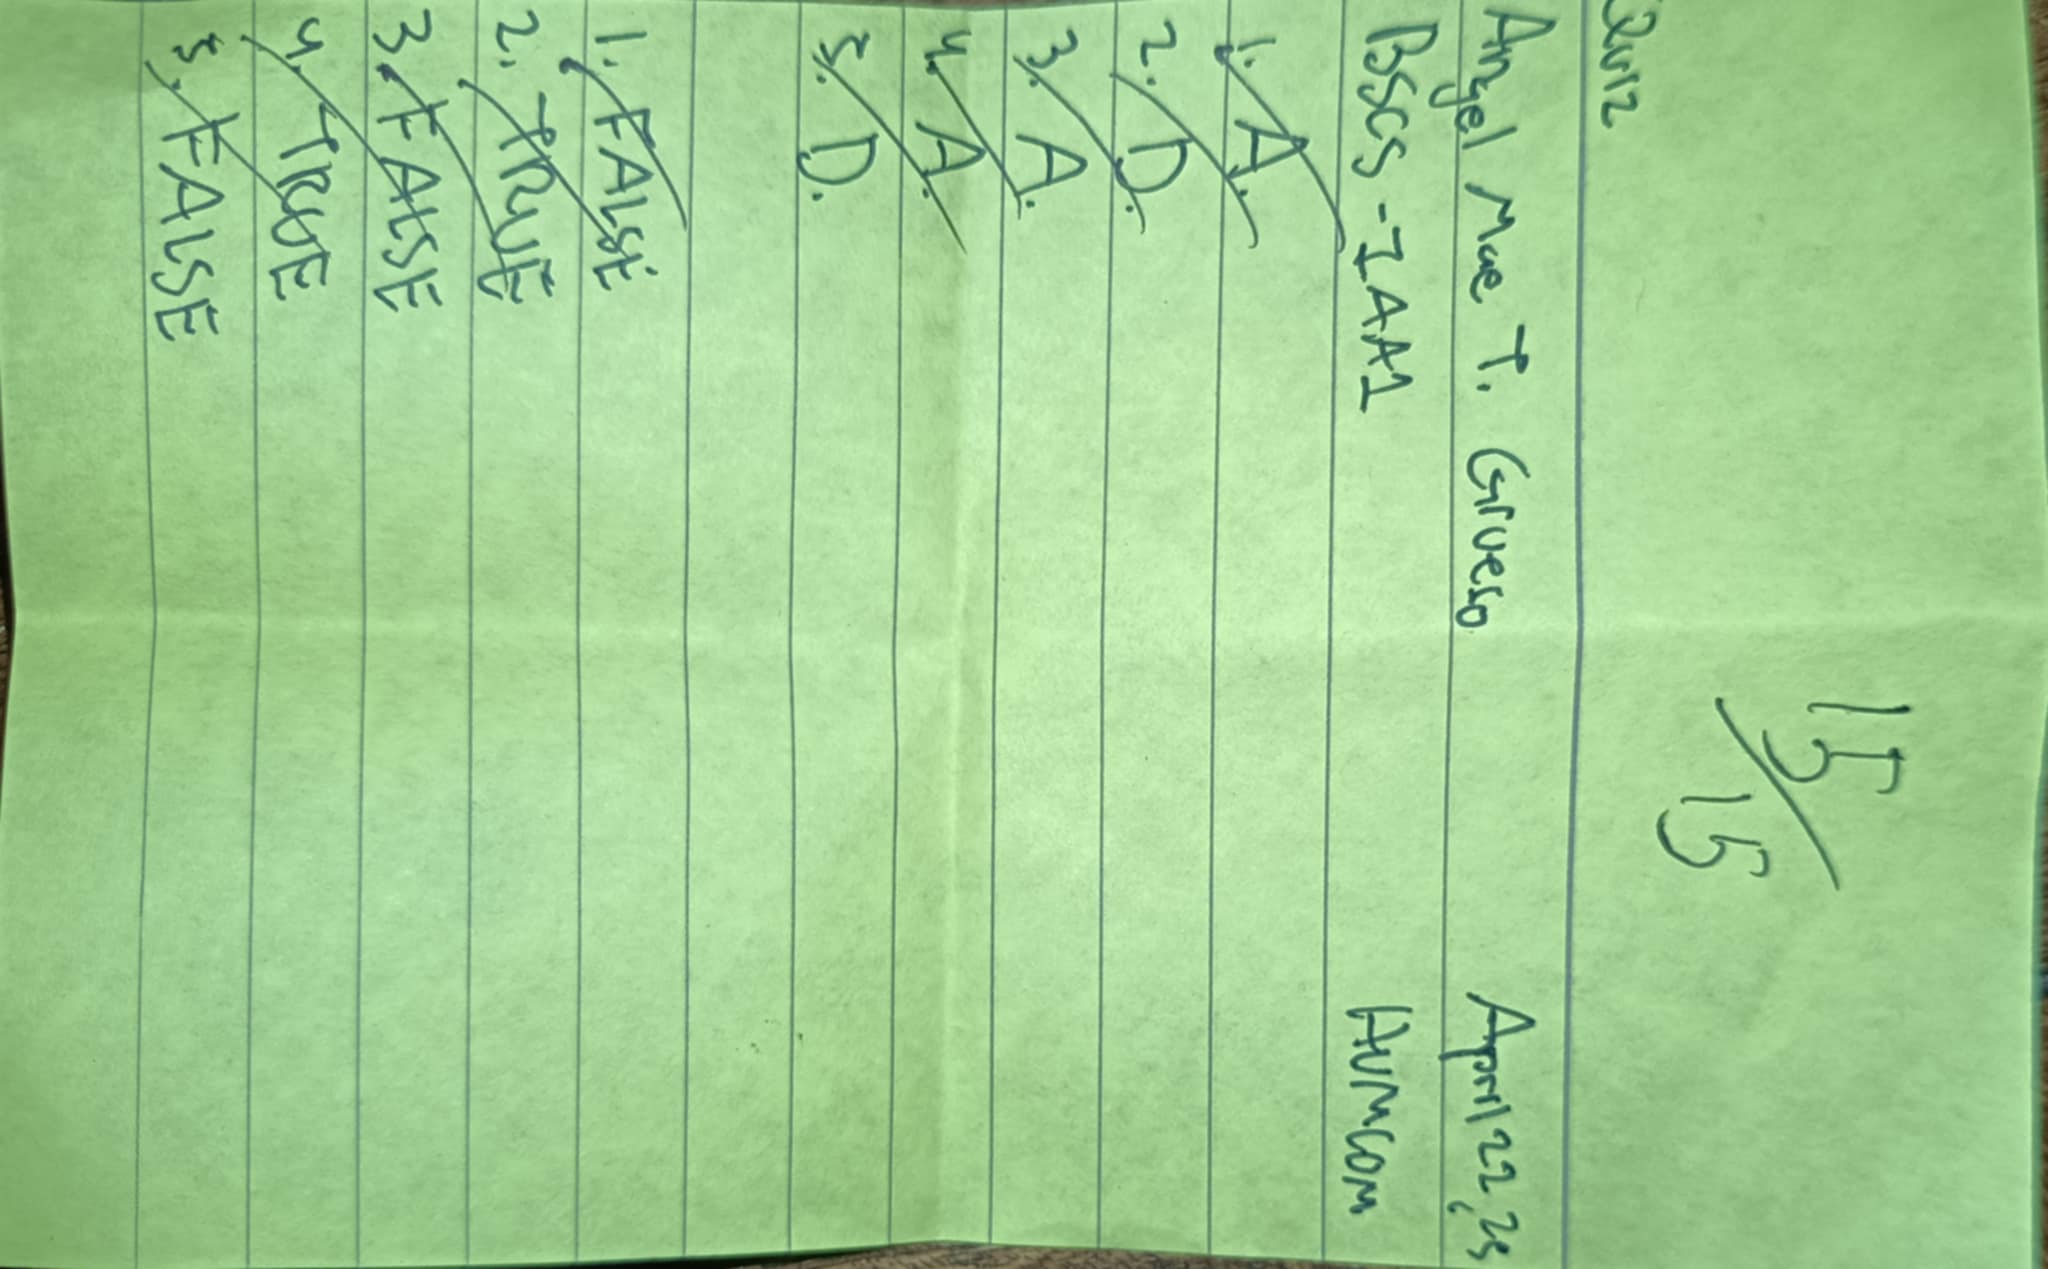 15/15
Quiz
Angel Mae T. Grueso April 22, 25
BSCS - 1AA1 HUMCOM
1. A.
2. D.
3. A.
4. A.
5. D.
1. FALSE
2. TRUE
3. FALSE
4. TRUE
5. FALSE